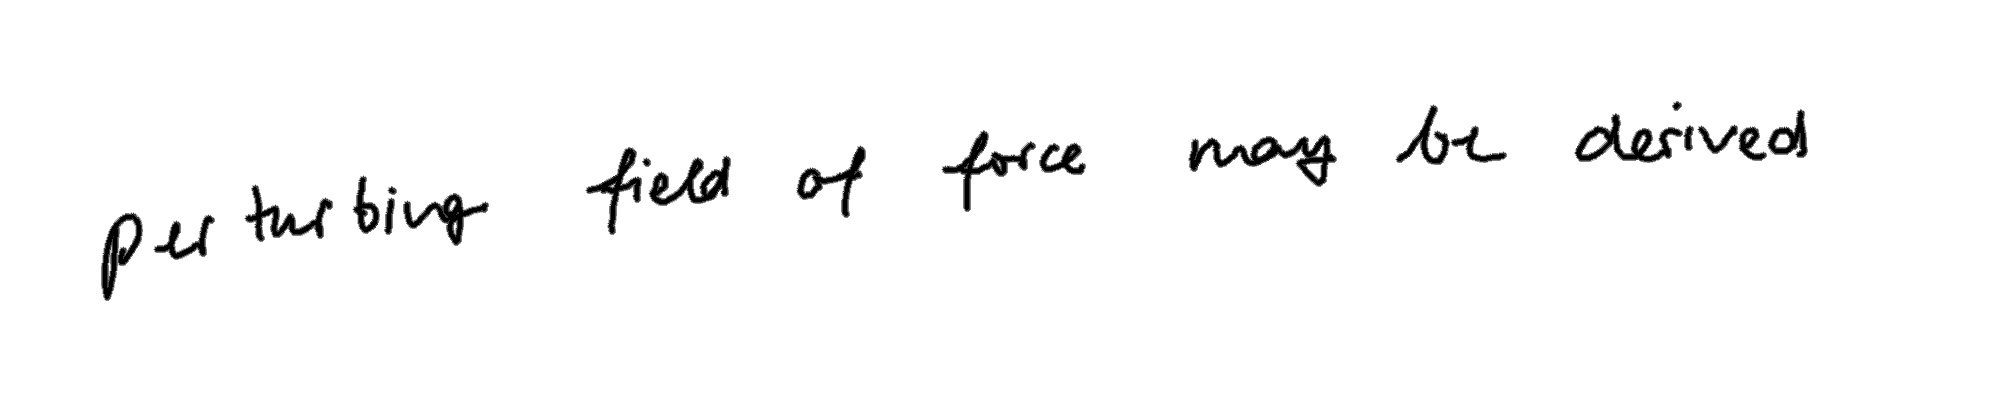 perturbing field of force may be derived